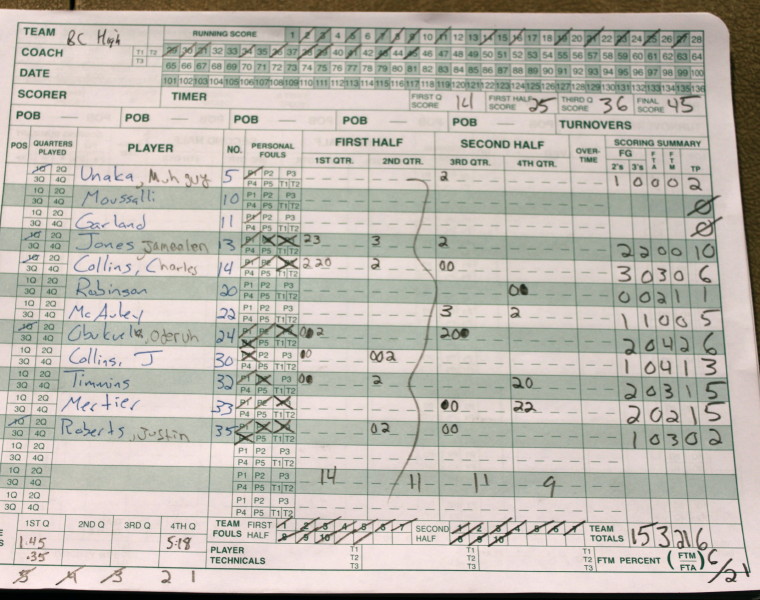 TEAM BC High RUNNING SCORE 1 2 3 4 5 6 7 8 9 10 11 12 13 14 15 16 17 18 19 20 21 22 23 24 25 26 27 28
COACH T1 T2 T3 29 30 31 32 33 34 35 36 37 38 39 40 41 42 43 44 45 46 47 48 49 50 51 52 53 54 55 56 57 58 59 60 61 62 63 64
DATE 65 66 67 68 69 70 71 72 73 74 75 76 77 78 79 80 81 82 83 84 85 86 87 88 89 90 91 92 93 94 95 96 97 98 99 100
101 102 103 104 105 106 107 108 109 110 111 112 113 114 115 116 117 118 119 120 121 122 123 124 125 126 127 128 129 130 131 132 133 134 135 136
SCORER TIMER FIRST Q SCORE 14 FIRST HALF SCORE 25 THIRD Q SCORE 36 FINAL SCORE 45
POB POB POB POB POB TURNOVERS
POS QUARTERS PLAYED PLAYER NO. PERSONAL FOULS FIRST HALF SECOND HALF OVER-TIME SCORING SUMMARY
1ST QTR. 2ND QTR. 3RD QTR. 4TH QTR. FG 2's 3's FTA FTM TP
1Q 2Q 3Q 4Q Unaka, 5 P1 P2 P3 P4 P5 T1 T2 2 1 0 0 0 2
1Q 2Q 3Q 4Q Moussalli 10 P1 P2 P3 P4 P5 T1 T2 0
1Q 2Q 3Q 4Q Garland 11 P1 P2 P3 P4 P5 T1 T2 0
1Q 2Q 3Q 4Q Jones 13 P1 P2 P3 P4 P5 T1 T2 23 3 2 2 2 0 0 10
1Q 2Q 3Q 4Q Collins, Charles 14 P1 P2 P3 P4 P5 T1 T2 220 2 00 3 0 3 0 6
1Q 2Q 3Q 4Q Robinson 20 P1 P2 P3 P4 P5 T1 T2 00 0 0 2 1 1
1Q 2Q 3Q 4Q McAuley 22 P1 P2 P3 P4 P5 T1 T2 3 2 1 1 0 0 5
1Q 2Q 3Q 4Q 24 P1 P2 P3 P4 P5 T1 T2 002 200 2 0 4 2 6
1Q 2Q 3Q 4Q Collins, J 30 P1 P2 P3 P4 P5 T1 T2 00 002 1 0 4 1 3
1Q 2Q 3Q 4Q Timmins 32 P1 P2 P3 P4 P5 T1 T2 00 2 20 2 0 3 1 5
1Q 2Q 3Q 4Q Mertier 33 P1 P2 P3 P4 P5 T1 T2 00 22 2 0 2 1 5
1Q 2Q 3Q 4Q Roberts, Justin 35 P1 P2 P3 P4 P5 T1 T2 02 00 1 0 3 0 2
1Q 2Q 3Q 4Q P1 P2 P3 P4 P5 T1 T2
1Q 2Q 3Q 4Q P1 P2 P3 P4 P5 T1 T2 14 11 11 9
1Q 2Q 3Q 4Q P1 P2 P3 P4 P5 T1 T2
1ST Q 2ND Q 3RD Q 4TH Q TEAM FOULS FIRST HALF 1 2 3 4 5 6 7 8 9 10 SECOND HALF 1 2 3 4 5 6 7 8 9 10 TEAM TOTALS 15 3 21 6
1:45 5:18
.35 PLAYER TECHNICALS T1 T2 T3 T1 T2 T3 T1 T2 T3 T1 T2 T3 FTM PERCENT (FTM/FTA) 6/21
5 4 3 2 1